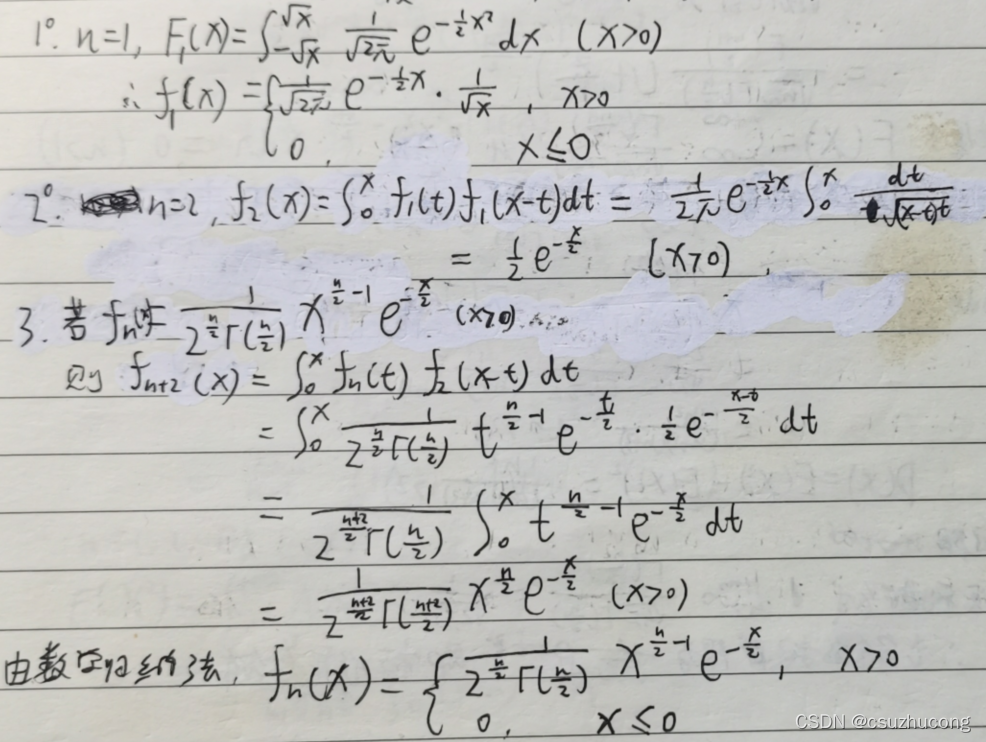 1°. n=1, F₁(x)=∫_{-√x}^{√x} 1/√(2π) e^{-½x²} dx (x>0)
∴ f₁(x) = { 1/√(2π) e^{-½x} · 1/√x , x>0
0 , x≤0
2°. n=2, f₂(x)=∫₀ˣ f₁(t)f₁(x-t)dt = 1/(2π) e^{-½x} ∫₀ˣ dt/√((x-t)t)
= ½ e^{-x/2} (x>0) ,
3. 若 fₙ(x)= 1/(2^{n/2} Γ(n/2)) x^{n/2 -1} e^{-x/2} (x>0)
则 f_{n+2}(x) = ∫₀ˣ fₙ(t) f₂(x-t) dt
= ∫₀ˣ 1/(2^{n/2} Γ(n/2)) t^{n/2 -1} e^{-t/2} · ½ e^{-(x-t)/2} dt
= 1/(2^{(n+2)/2} Γ(n/2)) ∫₀ˣ t^{n/2 -1} e^{-x/2} dt
= 1/(2^{(n+2)/2} Γ((n+2)/2)) x^{n/2} e^{-x/2} (x>0)
由数学归纳法, fₙ(x) = { 1/(2^{n/2} Γ(n/2)) x^{n/2 -1} e^{-x/2} , x>0
0 , x≤0
CSDN @csuzhucong